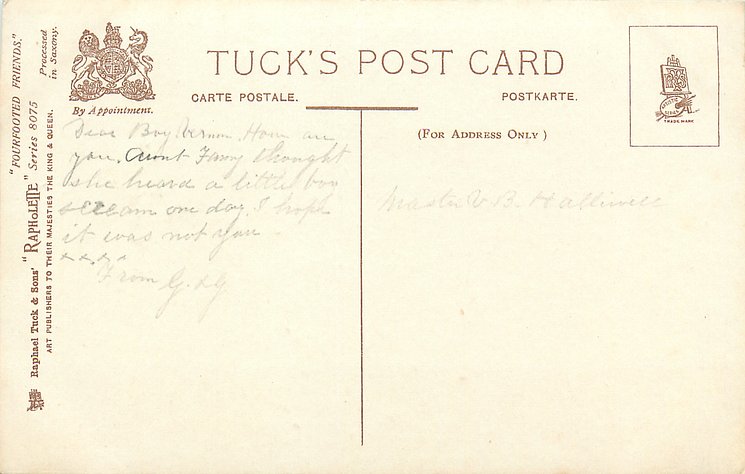 TUCK'S POST CARD
CARTE POSTALE.
POSTKARTE.
(FOR ADDRESS ONLY)
By Appointment.
"FOURFOOTED FRIENDS."
Processed in Saxony.
Raphael Tuck & Sons' "RAPHOLETTE" Series 8075
ART PUBLISHERS TO THEIR MAJESTIES THE KING & QUEEN.
TRADE MARK
Dear Boy Vernon. How are
you. Aunt Fanny thought
she heard a little boy
scream one day. I hope
it was not you
x x x x
From G. & G
Master V. B. Halliwell